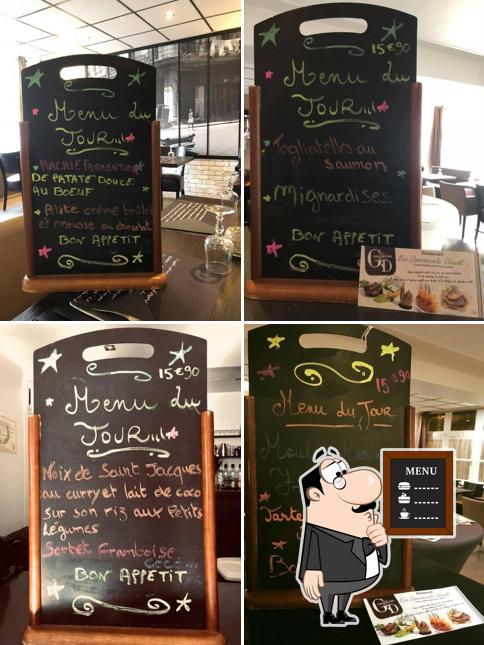 Menu du
JOUR...
HACHIE PARMENTIER
DE PATATE DOUCE
AU BOEUF
Petite crème brûlée
et mousse au chocolat
BON APPETIT
15€90
Menu du
JOUR...
Tagliatelles au
Saumon
Mignardises
BON APPETIT
Restaurant
Les Gourmands Disent
GD
15€90
Menu du
JOUR...
Noix de Saint Jacques
au curry et lait de coco
sur son riz aux Petits
légumes
Sorbet Framboise
coco
BON APPETIT
15€90
Menu du Jour
Tarte
MENU
Restaurant
Les Gourmands Disent
GD